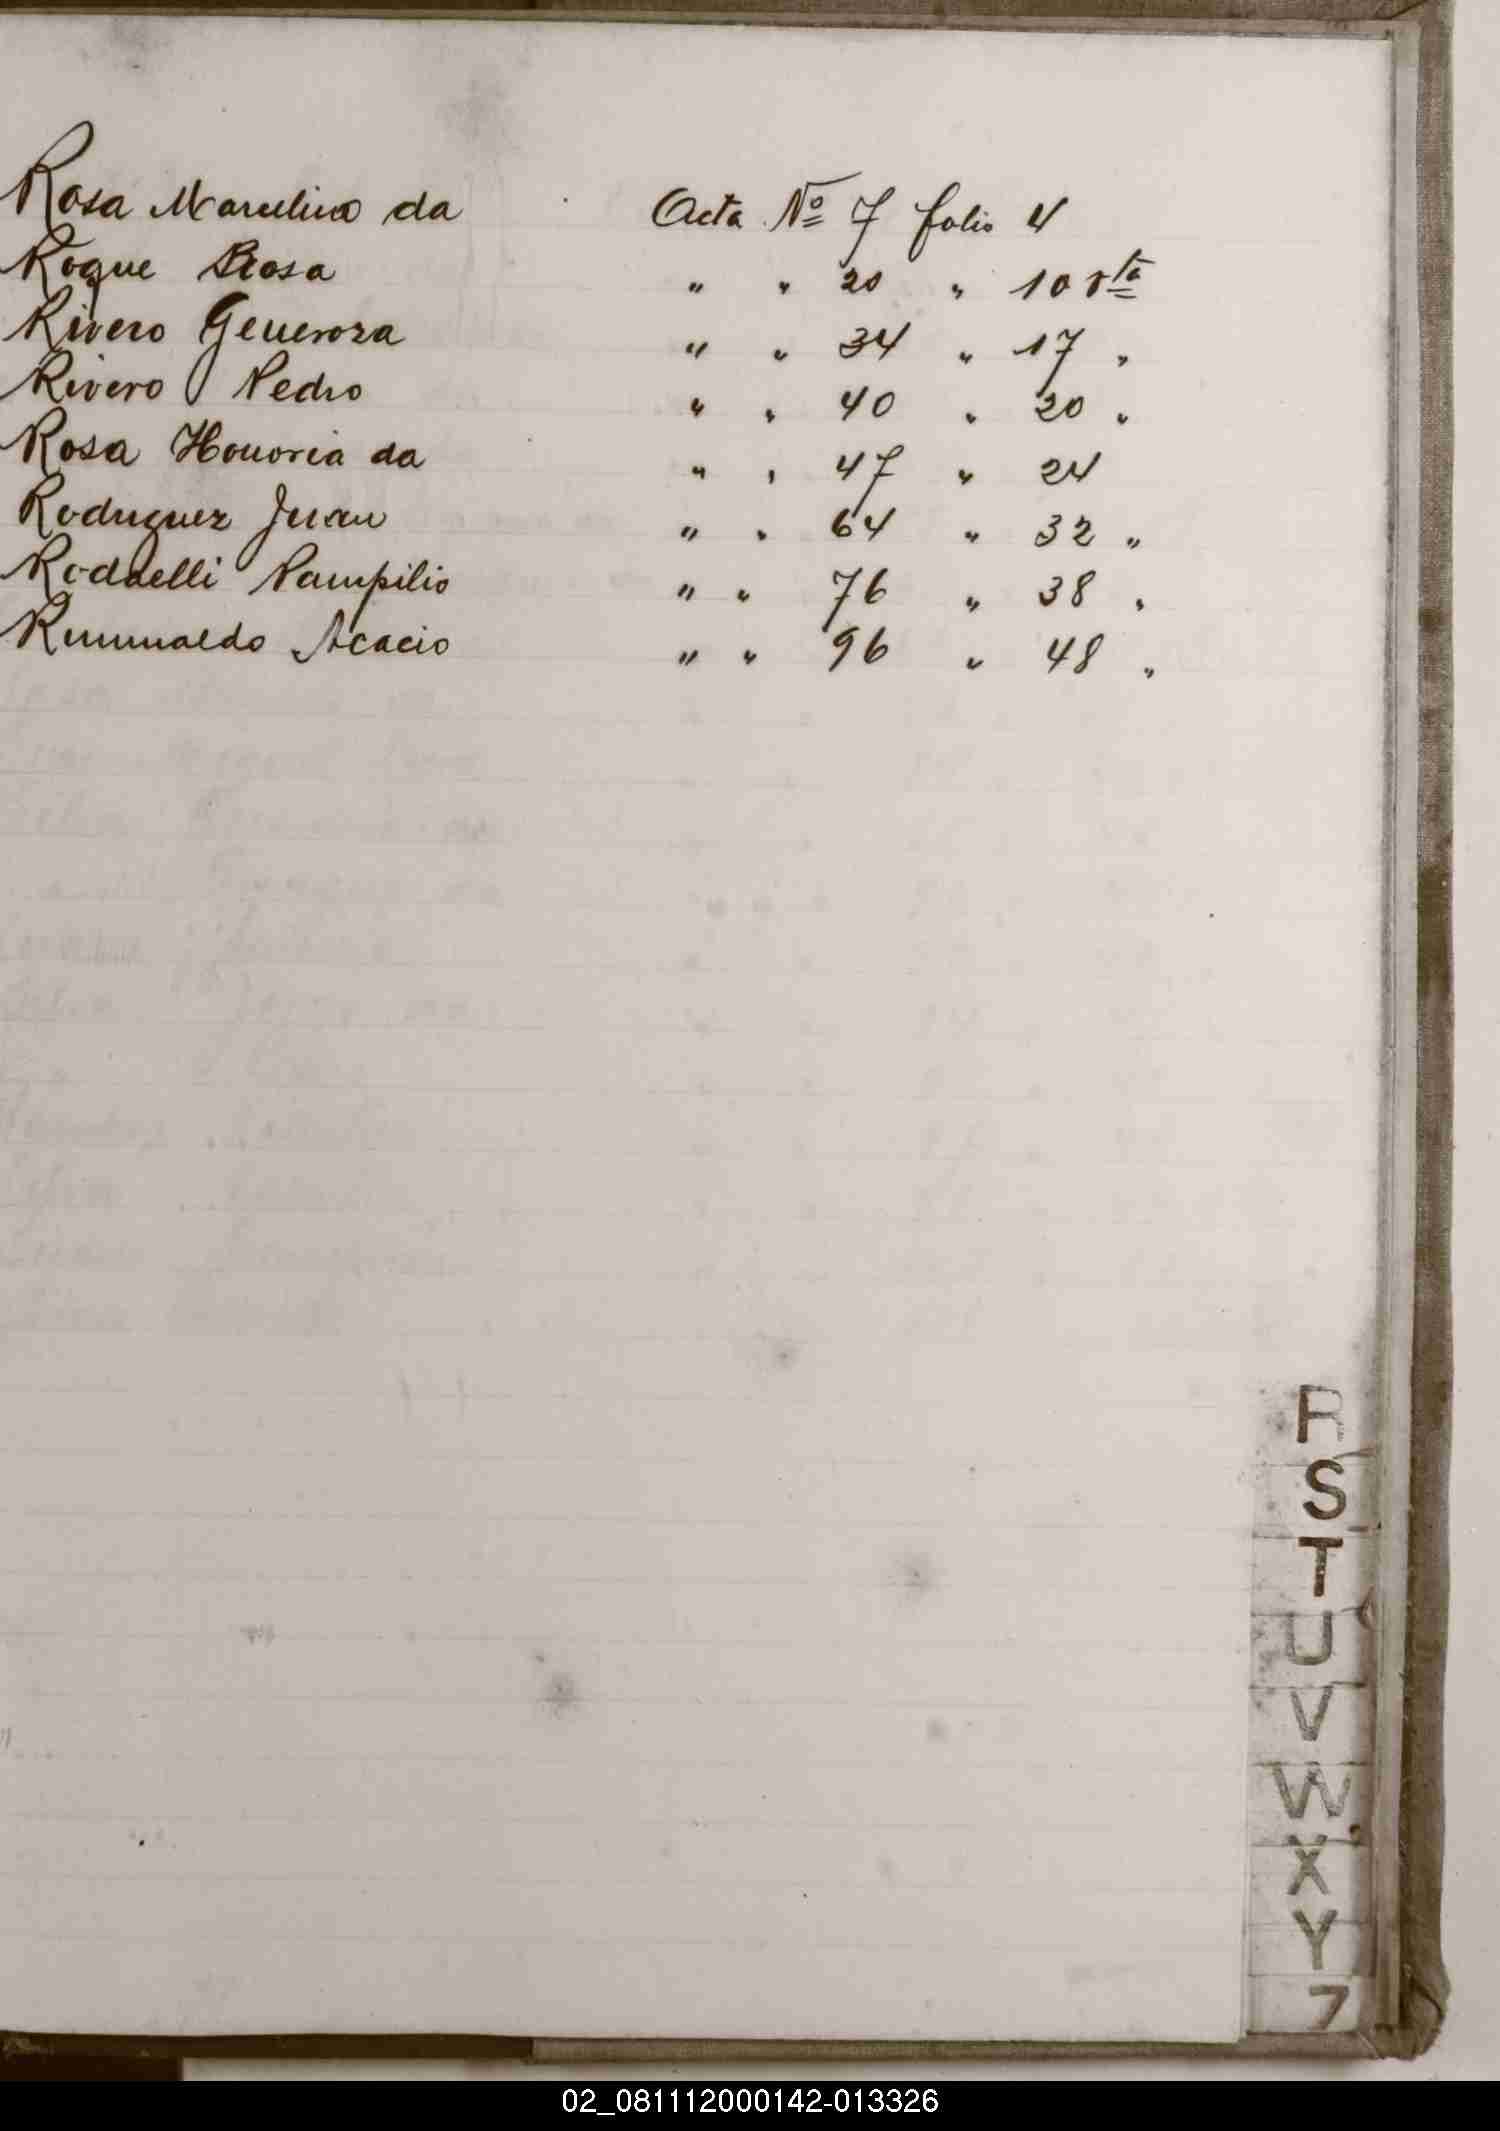 Rosa Marcelina da Acta Nº 7 folio 4
Roque Rosa " " 20 " 10 vta
Rivero Generoza " " 34 " 17 "
Rivero Pedro " " 40 " 20 "
Rosa Honoria da " " 47 " 24
Rodriguez Juan " " 64 " 32 "
Pampilio " " 76 " 38 "
Rumualdo Acacio " " 96 " 48 "
R
S
T
U
V
W
X
Y
Z
02_081112000142-013326